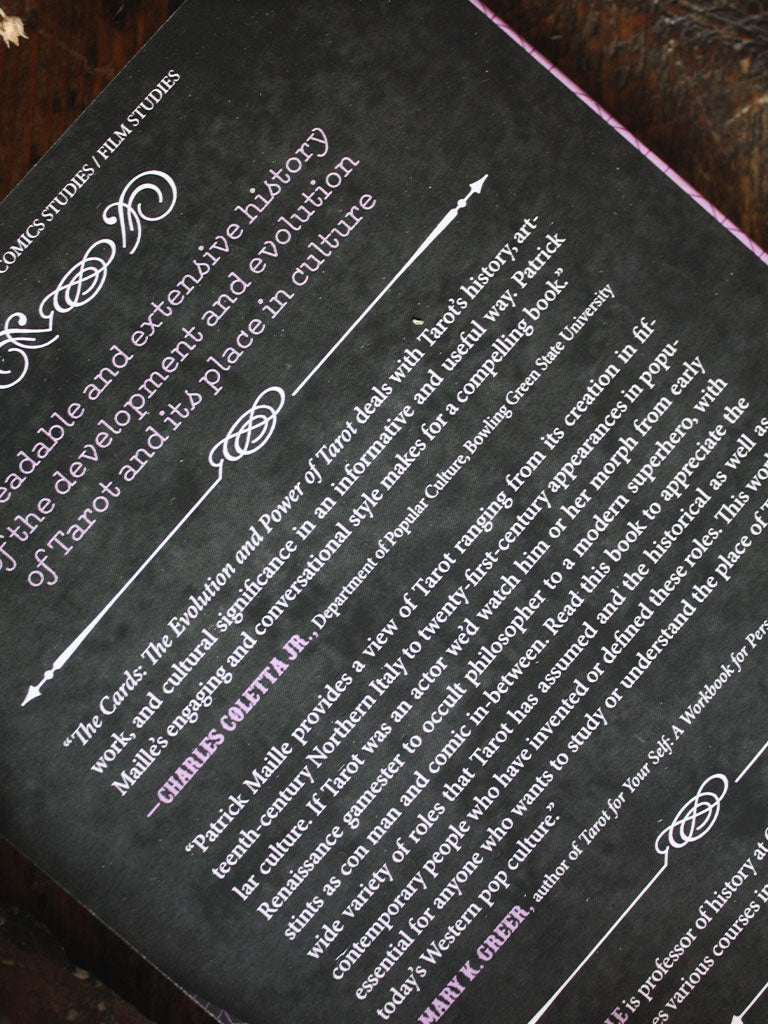 COMICS STUDIES / FILM STUDIES
readable and extensive history
of the development and evolution
of Tarot and its place in culture
“The Cards: The Evolution and Power of Tarot deals with Tarot’s history, art-
work, and cultural significance in an informative and useful way. Patrick
Maille’s engaging and conversational style makes for a compelling book.”
—CHARLES COLETTA JR., Department of Popular Culture, Bowling Green State University
“Patrick Maille provides a view of Tarot ranging from its creation in fif-
teenth-century Northern Italy to twenty-first-century appearances in popu-
lar culture. If Tarot was an actor we’d watch him or her morph from early
Renaissance gamester to occult philosopher to a modern superhero, with
stints as con man and comic in-between. Read this book to appreciate the
wide variety of roles that Tarot has assumed and the historical as well as
contemporary people who have invented or defined these roles. This work
essential for anyone who wants to study or understand the place of
today’s Western pop culture.”
MARY K. GREER, author of Tarot for Your Self: A Workbook for
is professor of history at
various courses in